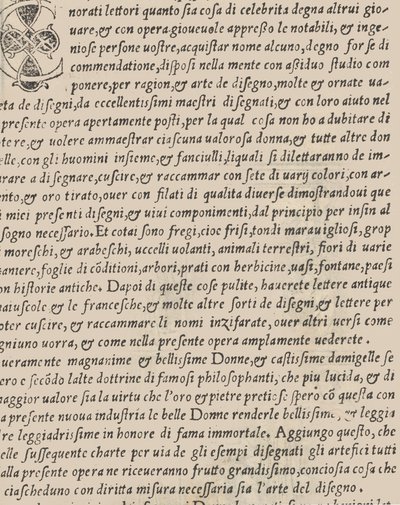 norati lettori quanto sia cosa di celebrita degna altrui gio-
uare,& con opera gioueuole appresso le notabili, & inge-
niose persone uostre,acquistar nome alcuno,degno forse di
commendatione,disposi nella mente con assiduo studio com
ponere,per ragion,& arte de disegno,molte & ornate ua-
eta de disegni,da eccellentissimi maestri disegnati,& con loro aiuto nel
presente opera apertamente posti,per la qual cosa non ho a dubitare di
tere,& uolere ammaestrar ciascuna ualorosa donna,& tutte altre don
elle,con gli huomini insieme,& fanciulli,liquali si dilettaranno de im-
rare a disegnare,cuscire,& raccammar con sete di uarij colori,con ar-
nto,& oro tirato,ouer con filati di qualita diuerse dimostrandoui que
i miei presenti disegni,& uiui componimenti,dal principio per insin al
sogno necessario.Et cotai sono fregi,cioe frisi,tondi marauigliosi,grop
moreschi,& arabeschi, uccelli uolanti, animali terrestri, fiori di uarie
aniere,foglie di cōditioni,arbori,prati con herbicine,uasi,fontane,paesi
on historie antiche. Dapoi di queste cose pulite, hauerete lettere antique
aiuscole & le francesche,& molte altre sorti de disegni,& lettere per
oter cuscire,& raccammare li nomi inzifarate, ouer altri uersi come
gniuno uorra, & come nella presente opera amplamente uederete.
ueramente magnanime & bellissime Donne,& castissime damigelle se
ero e secōdo lalte dottrine di famosi philosophanti, che piu lucida, & di
aggior ualore sia la uirtu che l'oro & pietre pretiose spero cō questa con
a presente nuoua industria le belle Donne renderle bellissime, & leggia
re leggiadrissime in honore di fama immortale. Aggiungo questo, che
elle sussequente charte per uia de gli esempi disegnati gli artefici tutti
alla presente opera ne riceueranno frutto grandissimo,conciosia cosa che
ciascheduno con diritta misura necessaria sia l'arte del disegno.